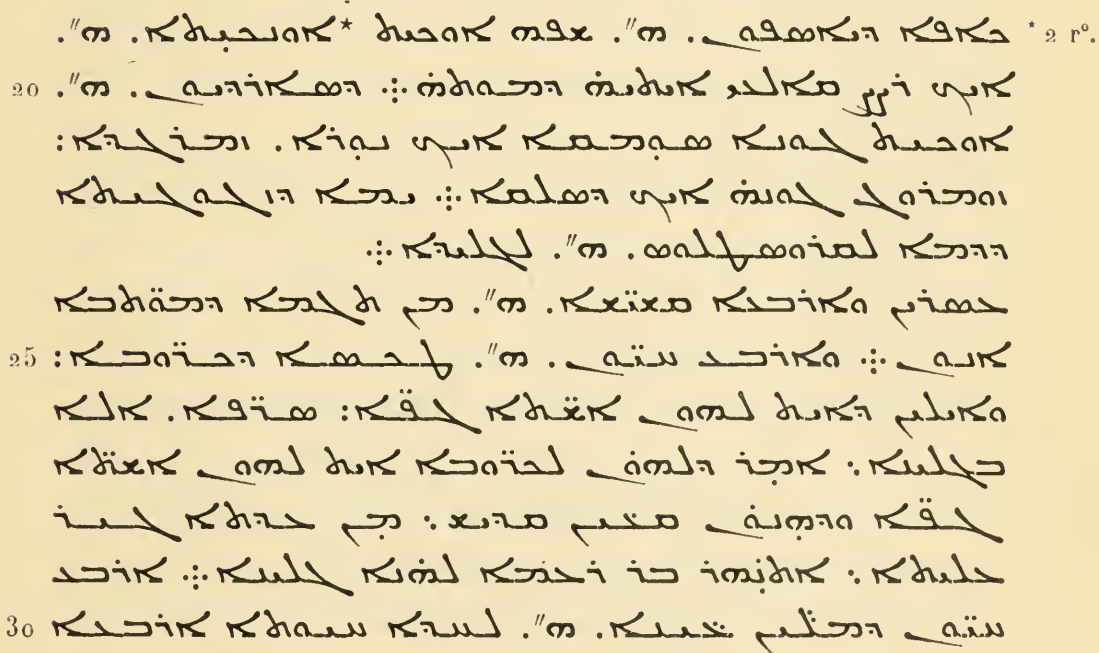 ܒܐܦܐ ܕܝܐܣܦܘܢ. ܗ". ܫܦܡ ܐܘܒܝܬ *ܐܘܢܒܝܬܐ. ܗ". * 2 rº.
ܐܝܟ ܪܙ ܡܐܠܝ ܐܝܬܝܗ̇ ܕܡܘܬܗ̇܀ ܕܣܐܪ̈ܕܝܘܢ. ܗ". 20
ܐܘܒܝܬ ܓܘܢܐ ܣܘܡܩܐ ܐܝܟ ܢܘܪܐ. ܘܡܪ̈ܓܕܐ:
ܘܡܪܘܓ ܓܘܢܗ̇ ܐܝܟ ܕܣܠܩܐ܀ ܝܡܐ ܕܓܘܓܠܝܬܐ
ܕܕܡܐ ܠܩܪܘܣܛܠܘܣ. ܗ". ܓܠܝܕܐ܀
ܥܣܪܝܢ ܘܐܪܒܥܐ ܩܫܝ̈ܫܐ. ܗ". ܡܢ ܬܓܡܐ ܕܡܠܐܟܐ
ܐܢܘܢ܀ ܘܐܪܒܥ ܚܝ̈ܘܢ. ܗ". ܛܟܣܐ ܕܟܪ̈ܘܒܐ: 25
ܘܐܝܠܝܢ ܕܐܝܬ ܠܗܘܢ ܐܫ̈ܬܐ ܓܦ̈ܐ: ܣܪ̈ܦܐ. ܐܠܐ
ܒܓܠܝܢܐ: ܐܡܪ ܕܠܗܘܢ ܠܟܪ̈ܘܒܐ ܐܝܬ ܠܗܘܢ ܐܫ̈ܬܐ
ܓܦ̈ܐ ܘܕܗܢܘܢ ܩܥܝܢ ܩܕܝܫ: ܡܢ ܥܕܬܐ ܓܝܪ
ܥܠܝܬܐ: ܐܬܝܗܪ ܟܪ ܪܥܡܐ ܠܗܢܐ ܓܠܝܢܐ܀ ܐܪܒܥ
ܚܝ̈ܘܢ ܕܡܠܝ̈ܢ ܥܝ̈ܢܐ. ܗ". ܠܚܕܐ ܚܝܘܬܐ ܐܪܒܥܐ 30